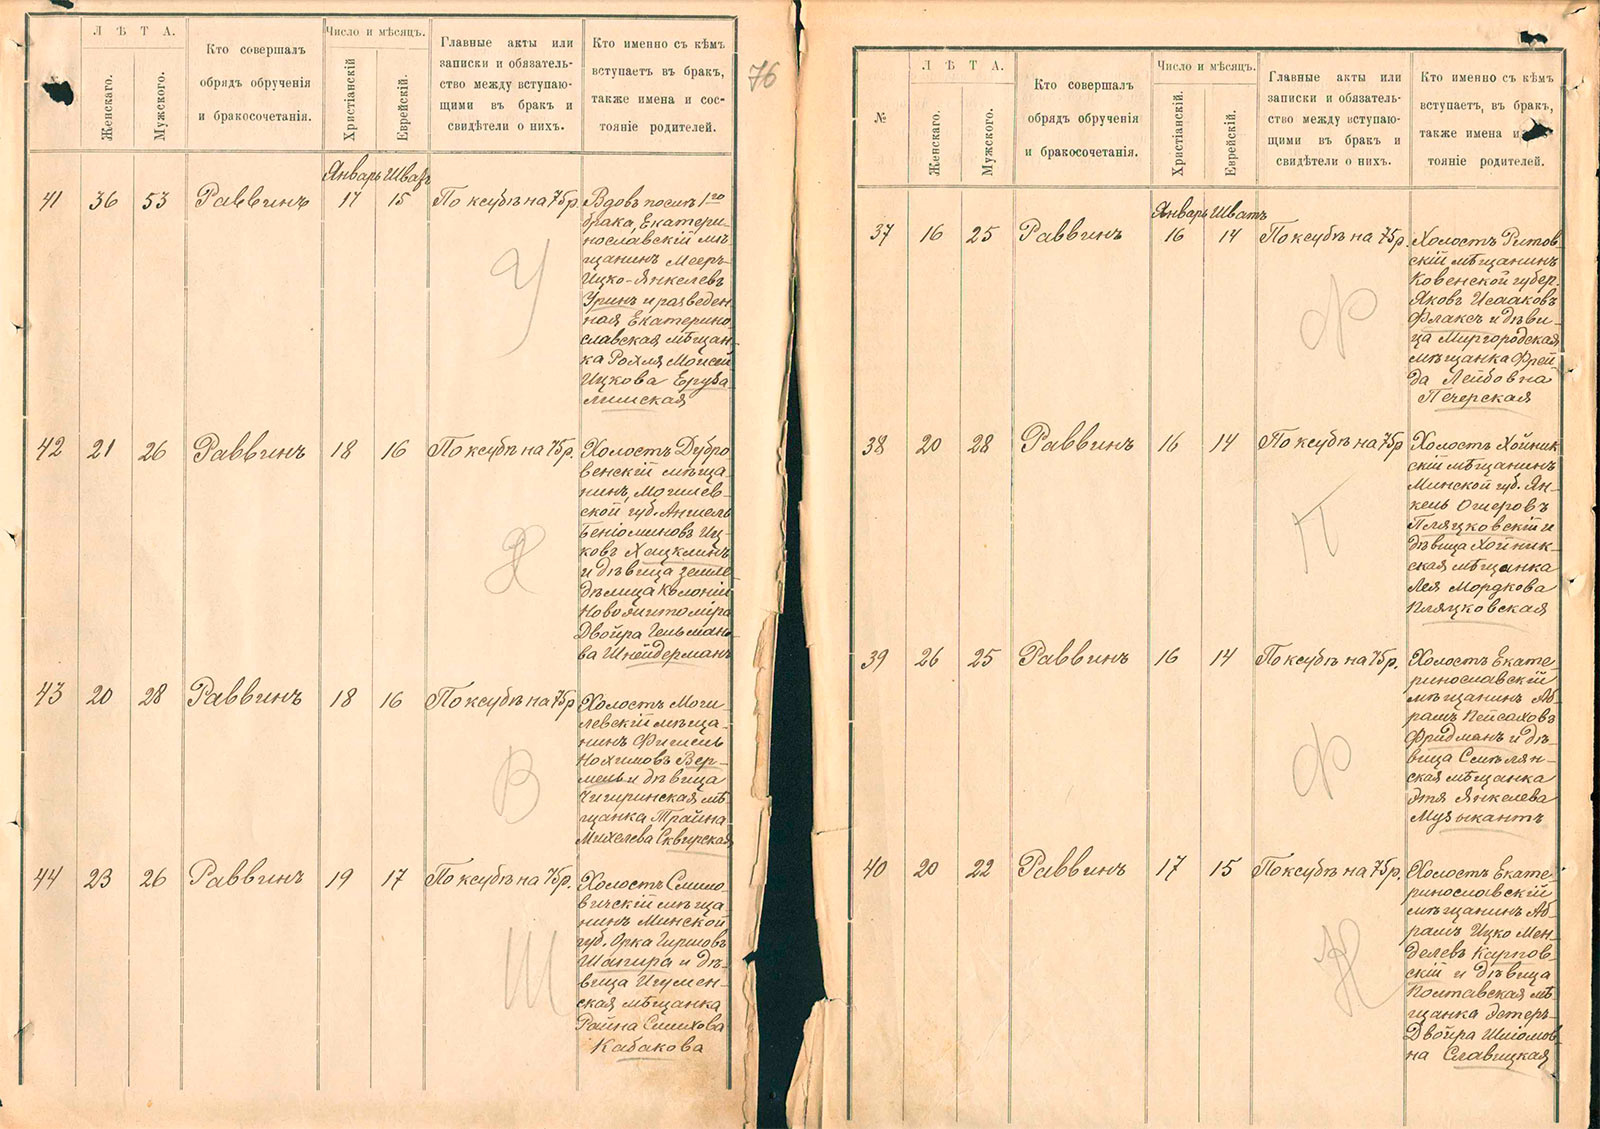 Л Ѣ Т А.
Женскаго.
Мужского.
Кто совершалъ
обрядъ обрученія
и бракосочетанія.
Число и мѣсяцъ.
Христіанскій
Еврейскій.
Главные акты или
записки и обязатель-
ство между вступаю-
щими въ бракъ и
свидѣтели о нихъ.
Кто именно съ кѣмъ
вступаетъ въ бракъ,
также имена и сос-
тояніе родителей.
76
Январь Шватъ
41 36 53 Раввинъ 17 15 По ксубѣ на 75 р.
Вдовъ послѣ 1го
брака, Екатери-
нославскій мѣ-
щанинъ Мееръ-
Ицко-Янкелевъ
Уринъ и разведен-
ная Екатерино-
славская мѣщан-
ка Рохля Моисей
Ицкова Еруза-
лимская
У
42 21 26 Раввинъ 18 16 По ксубѣ на 75 р.
Холостъ Дубро
венскій мѣща-
нинъ, Могилев-
ской губ. Аншель
Беніоминовъ Иц-
ковъ Хацклинъ
и дѣвица земле-
дѣлица колоніи
Новожитоміра
Двойра Гельмано-
ва Шнейдерманъ
Х
43 20 28 Раввинъ 18 16 По ксубѣ на 75 р
Холостъ Моги
левскій мѣща-
нинъ Фишель
Нохимовъ Вер-
мель и дѣвица
Чигиринская мѣ-
щанка Трайна
Михелева Сквирская
В
44 23 26 Раввинъ 19 17 По ксубѣ на 75 р.
Холостъ Смило-
вичскій мѣща-
нинъ Минской
губ. Орка Гиршовъ
Шапира и дѣ-
вица Игумен-
ская мѣщанка
Райна Слиохова
Кабакова
Ш
№
Л Ѣ Т А.
Женскаго.
Мужского.
Кто совершалъ
обрядъ обрученія
и бракосочетанія.
Число и мѣсяцъ.
Христіанскій.
Еврейскій.
Главные акты или
записки и обязатель-
ство между вступаю-
щими въ бракъ и
свидѣтели о нихъ.
Кто именно съ кѣмъ
вступаетъ, въ бракъ,
также имена и
тояніе родителей.
Январь Шватъ
37 16 25 Раввинъ 16 14 По ксубѣ на 75 р.
Холостъ Ритов-
скій мѣщанинъ
Ковенской губер.
Яковъ Исааковъ
Флаксъ и дѣви-
ца Миргородская
мѣщанка Фрей
да Лейбовна
Печерская
Ф
38 20 28 Раввинъ 16 14 По ксубѣ на 75 р
Холостъ Хойник
скій мѣщанинъ
Минской губ. Ян-
кель Ошеровъ
Пляцковскій и
дѣвица Хойник-
ская мѣщанка
Лея Мордкова
Пляцковская
П
39 26 25 Раввинъ 16 14 По ксубѣ на 75 р.
Холостъ Екате
ринославскій
мѣщанинъ Аб-
рамъ Пейсаховъ
Фридманъ и дѣ-
вица Смѣлян-
ская мѣщанка
Этя Янкелева
Музыкантъ
Ф
40 20 22 Раввинъ 17 15 По ксубѣ на 75 р.
Холостъ Екате-
ринославскій
мѣщанинъ Аб-
рамъ Ицко Мен-
делевъ Карпов-
скій и дѣвица
Полтавская мѣ-
щанка Эстеръ-
Двойра Шломов-
на Славицкая
К